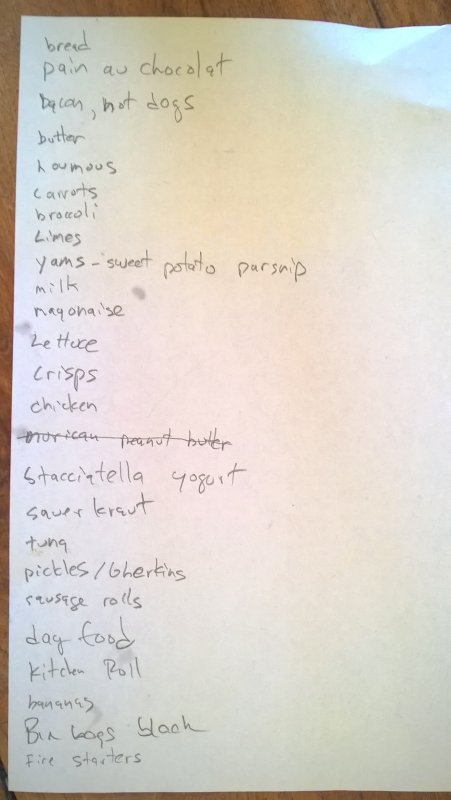 bread
pain au chocolat
bacon, hot dogs
butter
houmous
carrots
broccoli
Limes
yams - sweet potato parsnip
milk
mayonaise
Lettuce
crisps
chicken
morican peanut butter
Stacciatella yogurt
sauerkraut
tuna
pickles/Gherkins
sausage rolls
dog food
Kitchen Roll
bananas
Bin bags black
Fire starters